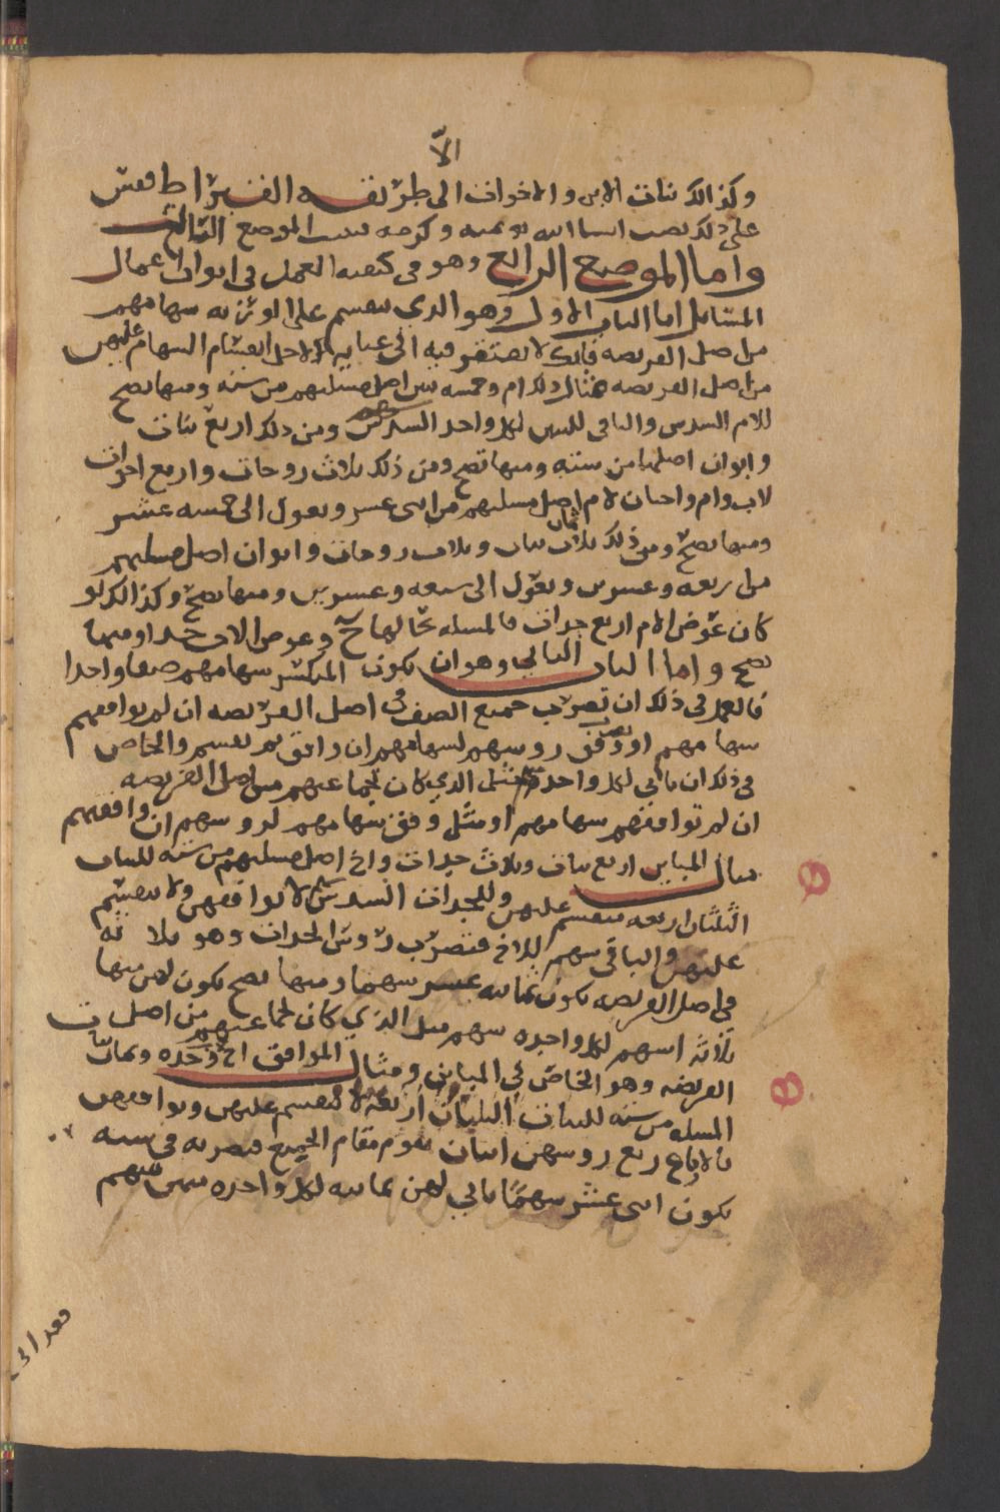 الا
وكذالك بنات الابن والاخوات الى طريقه القيراط فقس
على ذلك تصب ان شا الله بمنه وكرمه تمت الموضع الثالث
واما الموضع الرابع وهو في كيفيه العمل في ابواب الاعمال
المسائل اما الباب الاول وهو الذي تنقسم على الورثه سهامهم
من اصل الفريضه فانك لا تفتقر فيه الى عنايه لاجل انقسام السهام عليهن
من اصل الفريضه مثال ذلك ام وخمسه بنين اصل مسئلتهم من سته ومنها تصح
للام السدس والباقي للبنين لكل واحد السدس سهم ومن ذلك اربع بنات
وابوان اصلها من سته ومنها تصح ومن ذلك ثلاث زوجات واربع اخوات
لاب وام واختان لام اصل مسئلتهم من اثنى عشر وتعول الى خمسه عشر
ومنها تصح ومن ذلك ثمان بنات وثلاث زوجات وابوان اصل مسئلتهم
من اربعه وعشرين وتعول الى سبعه وعشرين ومنها تصح وكذالك لو
كان عوض الام اربع جدات فالمسله بحالها وعوض الاب جدا ومنها
تصح واما الباب الثاني وهو ان يكون المنكسر سهامهم صنفا واحدا
فالعمل في ذلك ان تضرب جميع الصنف في اصل الفريضه ان لم توافقهم
سهامهم او وفق روسهم لسهامهم ان وافق ثم تقسم والخاص
في ذلك ان ياتي لكل واحد مثل الذي كان لجماعتهم من اصل الفريضه
ان لم توافقهم سهامهم او مثل وفق سهامهم لروسهم ان وافقتهم
مثال المباين اربع بنات وثلاث جدات واخ اصل مسئلتهم من سته للبنات
الثلثان اربعه تنقسم عليهن وللجدات السدس لا يوافقهن ولا ينقسم
عليهن والباقي سهم للاخ فتضرب روس الجدات وهو ثلاثه
في اصل الفريضه يكون ثمانيه عشر سهما ومنها تصح يكون لهن منها
ثلاثه اسهم لكل واحده سهم مثل الذي كان لجماعتهم من اصل
الفريضه وهو الخاص في المباين ومثال الموافق اخ وجده وثمان بنات
المسله من سته للبنات الثلثان اربعه لا تنقسم عليهن وتوافقهن
بالارباع ربع روسهن اثنان تقوم مقام الجميع فتضربه في سته
يكون اثنى عشر سهما ياتي لهن ثمانيه لكل واحده منهن سهم